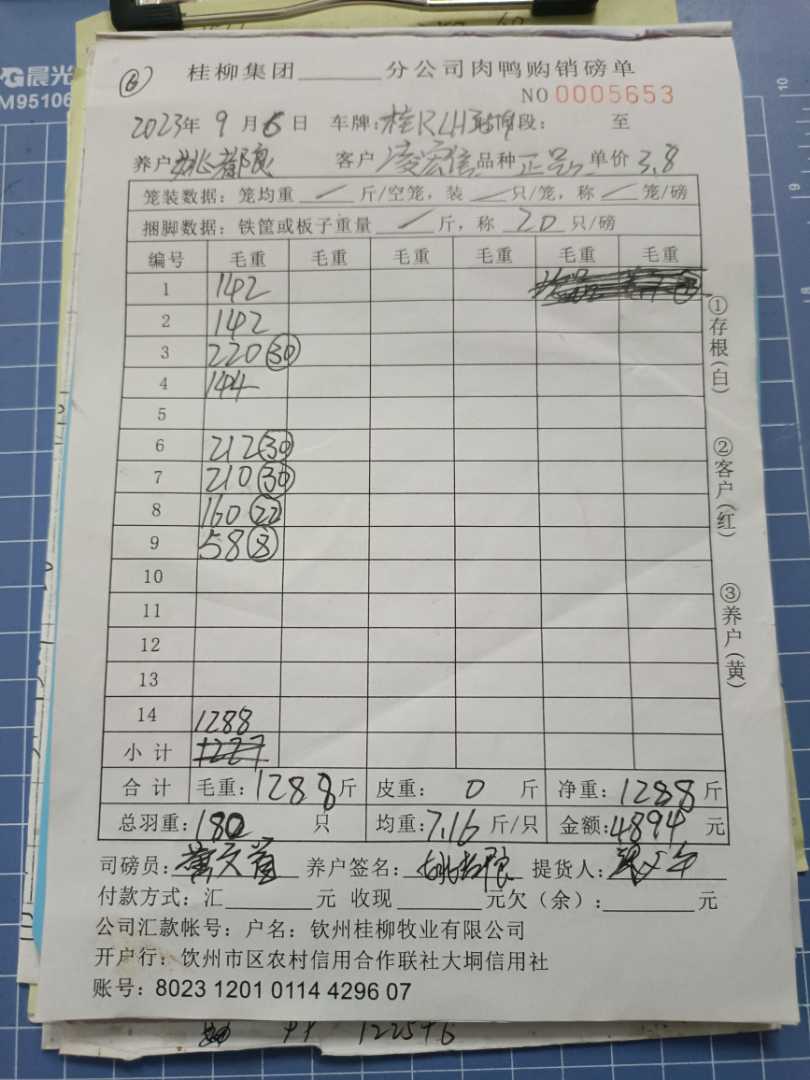 晨光
M95106
⑥
桂柳集团______分公司肉鸭购销磅单
NO 0005653
2023年 9 月 6 日 车牌: 桂R 段: 至
养户 客户 凌宏信 品种 正号 单价 3.8
笼装数据: 笼均重 / 斤/空笼, 装 / 只/笼, 称 / 笼/磅
捆脚数据: 铁筐或板子重量 / 斤, 称 20 只/磅
编号 毛重 毛重 毛重 毛重 毛重 毛重
1 142
2 142
3 220 ㉚
4 144
5
6 212 ㉚
7 210 ㉚
8 160 ㉒
9 58 ⑧
10
11
12
13
14 1288
小计 1227
合计 毛重: 1288 斤 皮重: 0 斤 净重: 1288 斤
总羽重: 180 只 均重: 7.16 斤/只 金额: 4894 元
司磅员: 养户签名: 提货人:
付款方式: 汇______元 收现______元欠(余):______元
公司汇款帐号: 户名: 钦州桂柳牧业有限公司
开户行: 饮州市区农村信用合作联社大垌信用社
账号: 8023 1201 0114 4296 07
①存根(白)
②客户(红)
③养户(黄)